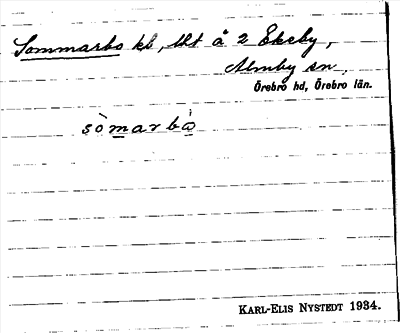 Sommarbo kl, lht å 2 Ekeby,
Almby sn.
Örebro hd, Örebro län.
sòmarbò
KARL-ELIS NYSTEDT 1934.